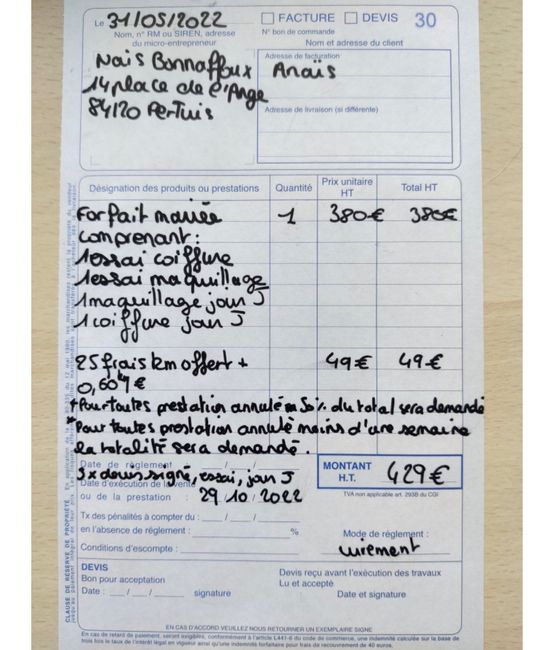 Le 31/05/2022
FACTURE DEVIS 30
Nom, n° RM ou SIREN, adresse
du micro-entrepreneur
N° bon de commande
Nom et adresse du client
Naïs Bonnaffoux
14 place de l'Ange
84120 Pertuis
Adresse de facturation
Anaïs
Adresse de livraison (si différente)
Désignation des produits ou prestations Quantité Prix unitaire HT Total HT
Forfait mariée 1 380€ 380€
comprenant:
1 essai coiffure
1 essai maquillage
1 maquillage jour J
1 coiffure jour J
25 frais km offert + 49€ 49€
0,601€
*Pour toutes prestation annulé 50% du total sera demandé
*Pour toutes prestation annulé moins d'une semaine
la totalité sera demandé.
Date de règlement : __/__/__
3x devis signé, essai, jour J
Date d'exécution de la vente
ou de la prestation : 29/10/2022
MONTANT H.T. 429€
TVA non applicable art. 293B du CGI
Tx des pénalités à compter du : __/__/__
en l'absence de règlement : %
Mode de règlement :
Conditions d'escompte :
virement
DEVIS
Bon pour acceptation
Date : __/__/__ signature
Devis reçu avant l'exécution des travaux
Lu et accepté
Date et signature
EN CAS D'ACCORD VEUILLEZ NOUS RETOURNER UN EXEMPLAIRE SIGNE
En cas de retard de paiement, seront exigibles, conformément à l'article L441-6 du code de commerce, une indemnité calculée sur la base de
trois fois le taux de l'intérêt légal en vigueur ainsi qu'une indemnité forfaitaire pour frais de recouvrement de 40 euros.
CLAUSE DE RESERVE DE PROPRIÉTÉ.